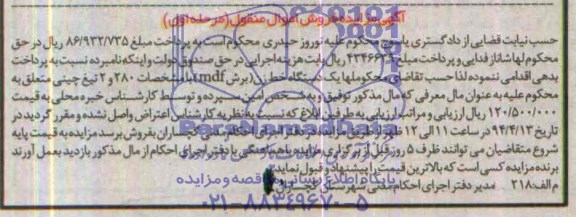 آگهی مزایده فروش اموال منقول (مرحله اول)
حسب نیابت قضایی از دادگستری یاسوج محکوم علیه نوروز حیدری محکوم است به پرداخت مبلغ ۸۶/۹۳۲/۷۳۵ ریال در حق
محکوم لها شناز فدایی و پرداخت مبلغ ۴۳۴۶۶۳۶ ریال بابت هزینه اجرایی در حق صندوق دولت و اینکه نامبرده نسبت به پرداخت
بدهی اقدامی ننموده لذا حسب تقاضای محکوم لها یک دستگاه خط زن (برش mdf) با مشخصات ۲۸۰ و ۲ تیغ چینی متعلق به
محکوم علیه به عنوان مال معرفی که مال مذکور توقیف و به شخص امین سپرده و توسط کارشناس خبره محلی به قیمت
۱۲۰/۵۰۰/۰۰۰ ریال ارزیابی و مراتب ارزیابی به طرفین ابلاغ که نسبت به نظریه کارشناس اعتراض واصل نشده و مقرر گردید در
تاریخ ۹۴/۴/۱۳ در ساعت ۱۱ الی ۱۲ به فروش برسد مزایده به قیمت پایه
شروع متقاضیان می توانند ظرف ۵ روز قبل از برگزاری مزایده با هماهنگی با دفتر اجرای احکام از مال مذکور بازدید بعمل آورند
برنده مزایده کسی است که بالاترین قیمت را پیشنهاد و قبول نماید
م الف: ۲۱۸ مدیر دفتر اجرای احکام مدنی شهرستان گچساران
پایگاه اطلاع رسانی مناقصه و مزایده
۰۲۱-۸۸۳۴۹۶۷۰-۵